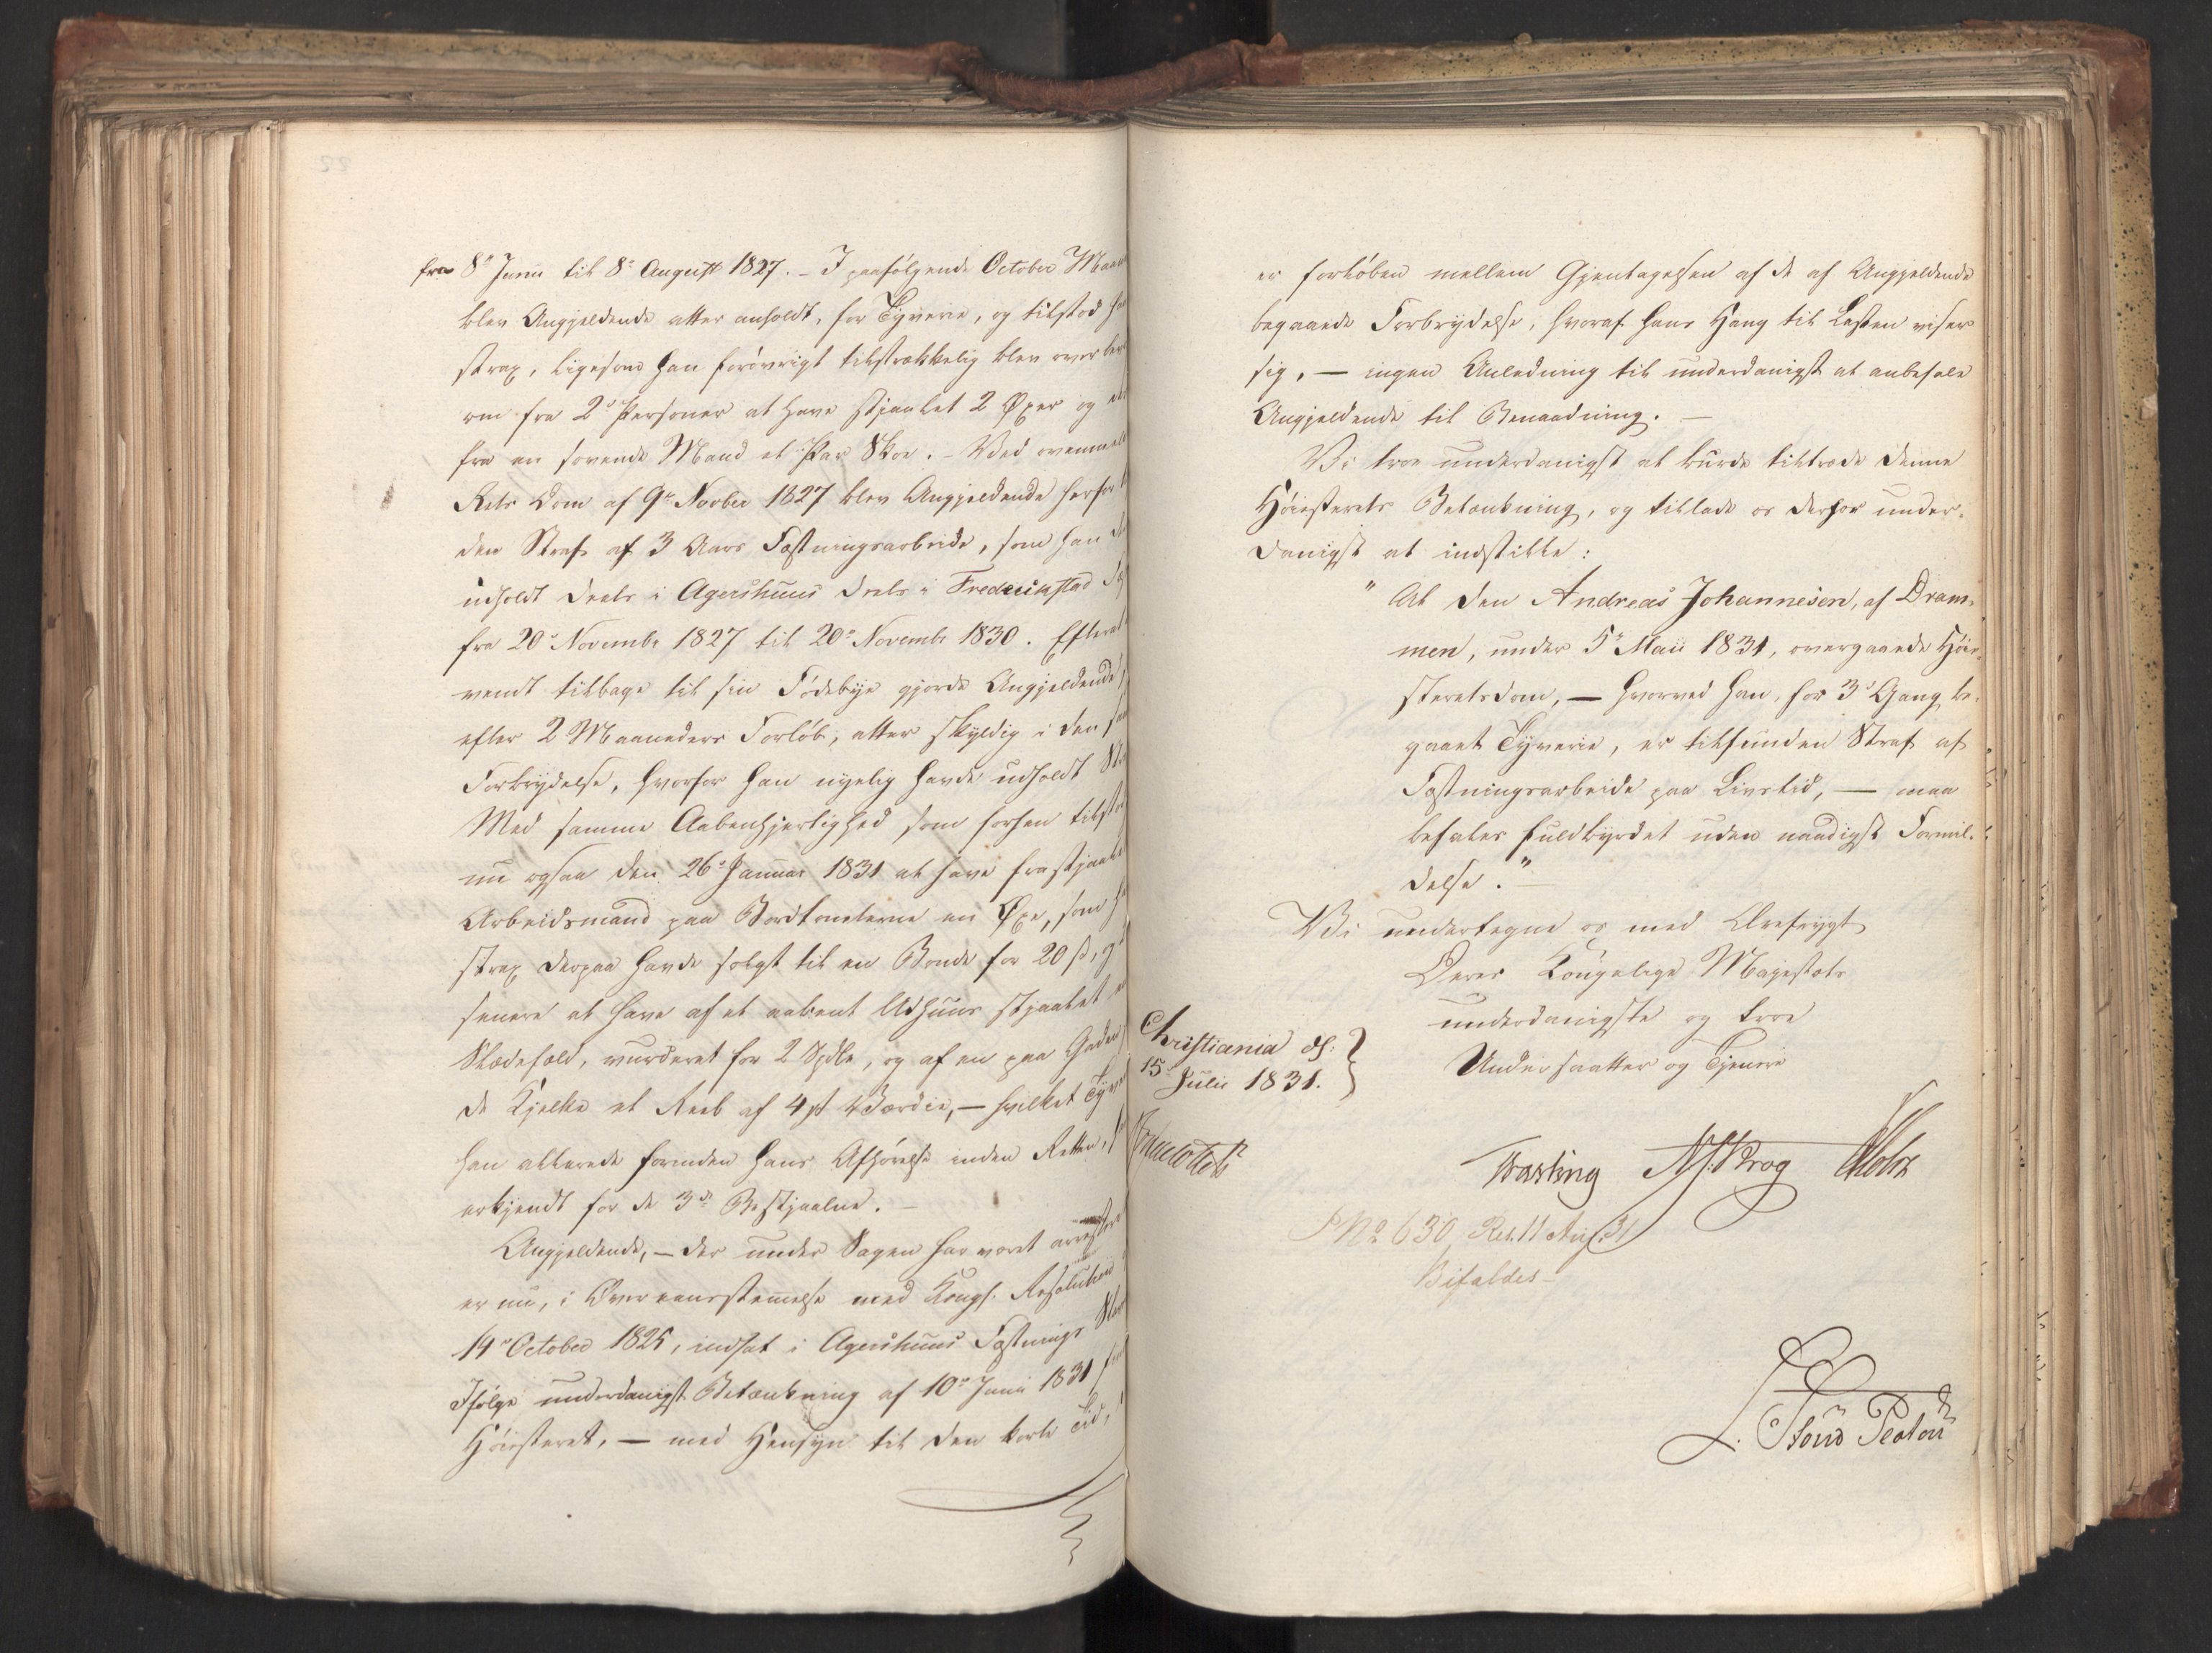 fra 8de Junii til 8de August 1827. – I paafølgende October Maaned
blev Angjeldende atter anholdt, for Tyverie, og tilstod han
strax, ligesom han forøvrigt tilstrækkelig blev overbeviist
om fra 2de Personer at have stjaalet 2 Øxer og
fra en sovende Mand et Par Skoe. – Ved ovenmeldte
Rets Dom af 9de Novber 1827 blev Angjeldende herfor
den Straf af 3 Aars Fæstningsarbeide, som han
udholdt deels i Agershuus deels i Frederikstad
fra 20de Novembr 1827 til 20de Novembr 1830. Efterat
vendt tilbage til sin Fødebye gjorde Angjeldende,
efter 2 Maaneders Forløb, atter skyldig i den
Forbrydelse, hvorfor han nyelig havde udholdt
Med samme Aabenhjertighed som forhen tilstod
nu ogsaa den 26de Januar 1831 at have frastjaalet
Arbeidsmand paa Bordtomterne en Øxe, som
strax derpaa havde solgt til en Bonde for 20 ß, og
senere at have af et aabent Udhuus stjaalet
Slædefæld, vurderet for 2 Spdlr, og af en paa Gaden
de Kjelke et Reeb af 4 ß Værdie, – hvilket
han allerede forinden hans Afhørelse inden Retten,
erkjendt for de 3de Bestjaalne. –
Angjeldende, – der under Sagen har været arresteret
er nu, i Overeensstemmelse med Kongl. Resolution
14de October 1825, indsat i Agershuus Fæstnings
Ifølge underdanigst Betænkning af 10de Junii 1831
Høiesteret, – med Hensyn til den korte Tid,
er forløben mellem Gjentagelsen af de af Angjeldende
begaaede Forbrydelse, hvoraf hans Hang til Lasten viser
sig, – ingen Anledning til underdanigst at anbefale
Angjeldende til Benaadning. –
Vi troe underdanigst at burde tiltræde denne
Høiesterets Betænkning, og tillade os derfor under-
danigst at indstille:
"At den Andreas Johannesen, af Dram-
men, under 5te Maii 1831, overgaaede Høie-
steretsdom, – hvorved han, for 3de Gang be-
gaaet Tyverie, er tilfunden Straf af
Fæstningsarbeide paa Livstid, – maa
befales fuldbyrdet uden naadigst Formil-
delse." –
Vi undertegne os med Ærefrygt
Deres Kongelige Majestæts
underdanigste og troe
Undersaatter og Tjenere
Christiania d:
15 Julii 1831.
Vasting N. Krog Holst
S No 630, Res. 11 Aug 31
Bifaldes –